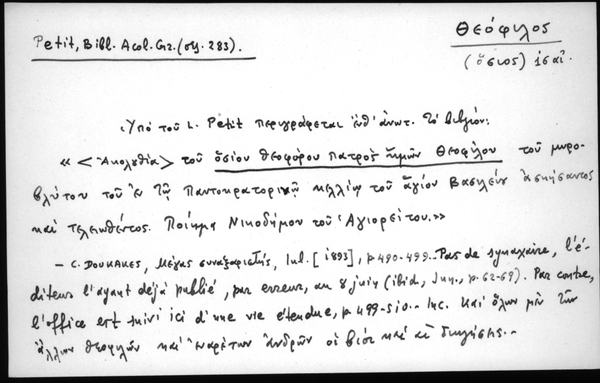 Θεόφιλος
Petit, Bibl. Acol. Gr. (σελ. 283).
(ὅσιος)
Ὑπὸ τοῦ L. Petit περιγράφεται ἔνθ' ἀνωτ. τὸ βιβλίον:
« < Ἀκολουθία > τοῦ ὁσίου θεοφόρου πατρὸς ἡμῶν Θεοφίλου τοῦ μυρο-
βλύτου τοῦ ἐν τῷ Παντοκρατορικῷ κελλίῳ τοῦ ἁγίου Βασιλείου ἀσκήσαντος
καὶ τελειωθέντος. Ποίημα Νικοδήμου τοῦ Ἁγιορείτου.»
— C. DOUKAKES, Μέγας συναξαριστής, Iul. [1893], p. 490-499. Pas de synaxaire, l'é-
diteur l'ayant déjà publié, par erreur, au 8 juin (ibid., Jun., p. 62-69). Par contre,
l'office est suivi ici d'une vie étendue, p. 499-510. Inc. Καὶ ὅλων μὲν τῶν
ἄλλων θεοφιλῶν καὶ ἐναρέτων ἀνδρῶν οἱ βίοι καὶ αἱ διηγήσεις.